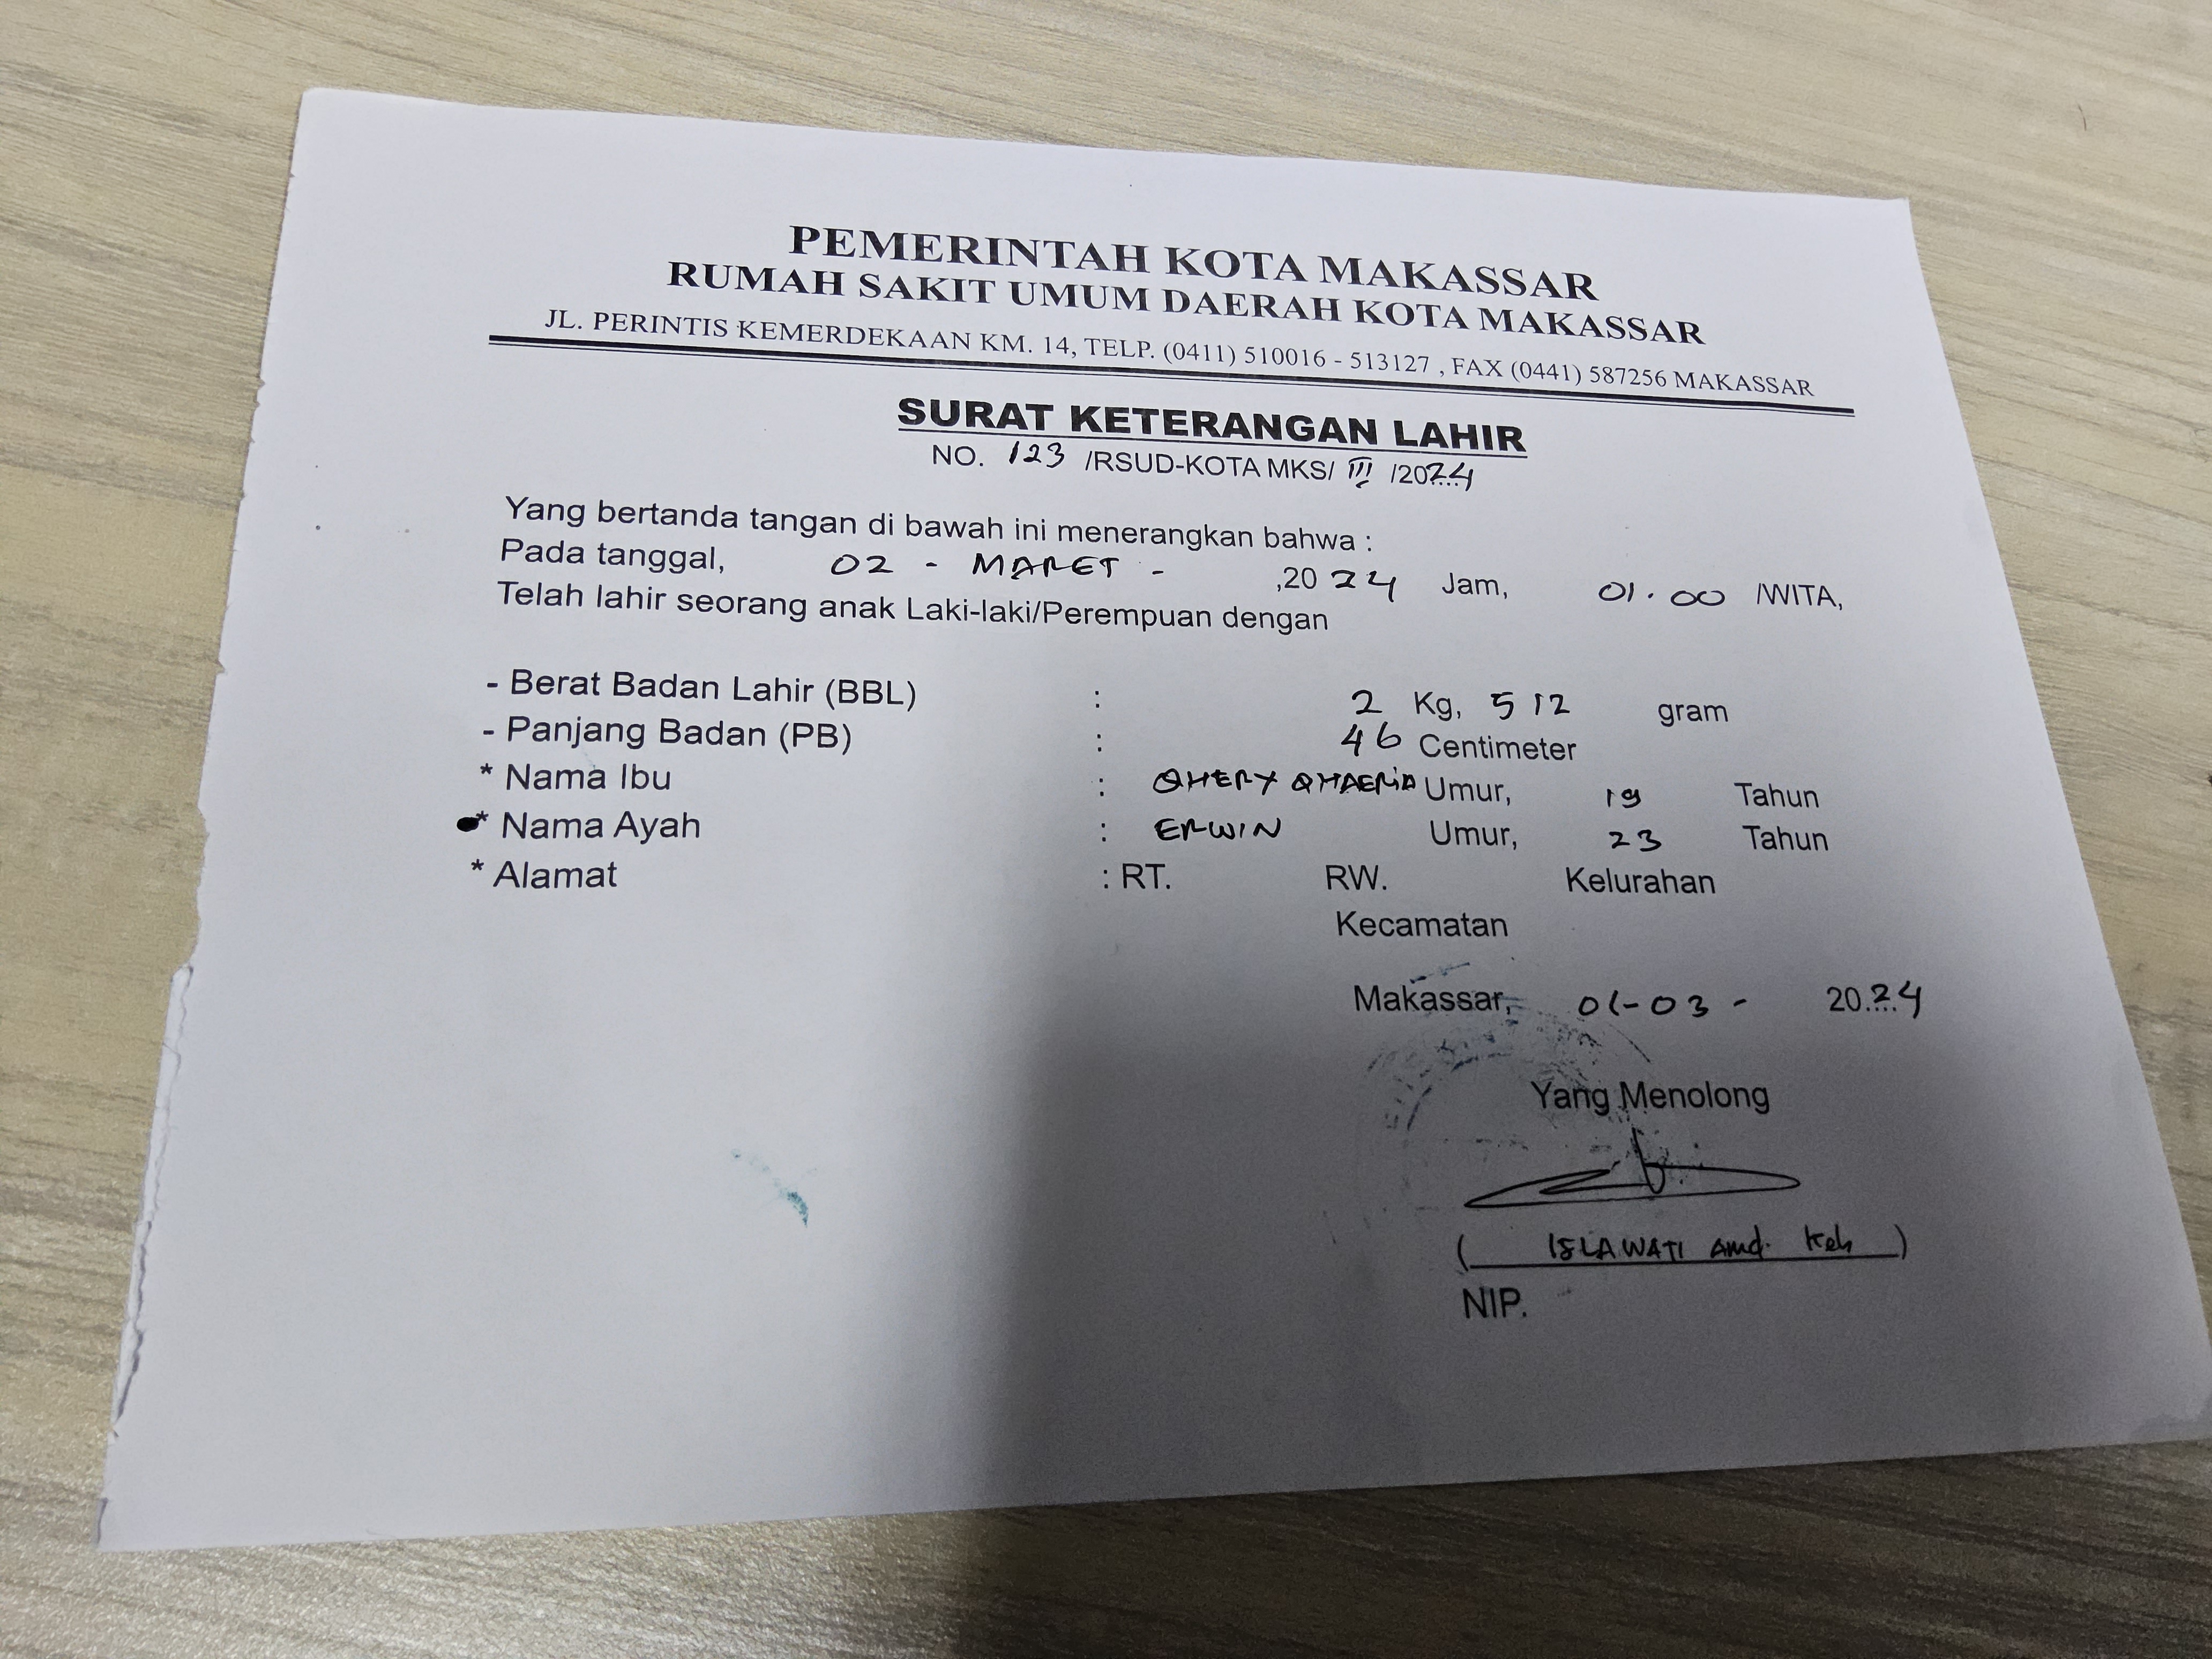 PEMERINTAH KOTA MAKASSAR
RUMAH SAKIT UMUM DAERAH KOTA MAKASSAR
JL. PERINTIS KEMERDEKAAN KM. 14, TELP. (0411) 510016 - 513127 , FAX (0441) 587256 MAKASSAR
SURAT KETERANGAN LAHIR
NO. 123 /RSUD-KOTA MKS/ III /2024
Yang bertanda tangan di bawah ini menerangkan bahwa :
Pada tanggal, 02 - MARET - ,20 24 Jam, 01.00 /WITA,
Telah lahir seorang anak Laki-laki/Perempuan dengan
- Berat Badan Lahir (BBL) : 2 Kg, 512 gram
- Panjang Badan (PB) : 46 Centimeter
* Nama Ibu : QHERY QHAERIA Umur, 19 Tahun
* Nama Ayah : ERWIN Umur, 23 Tahun
* Alamat : RT. RW. Kelurahan
Kecamatan
Makassar, 01-03 - 20.24
Yang Menolong
( ISLAWATI Amd. Keb )
NIP.